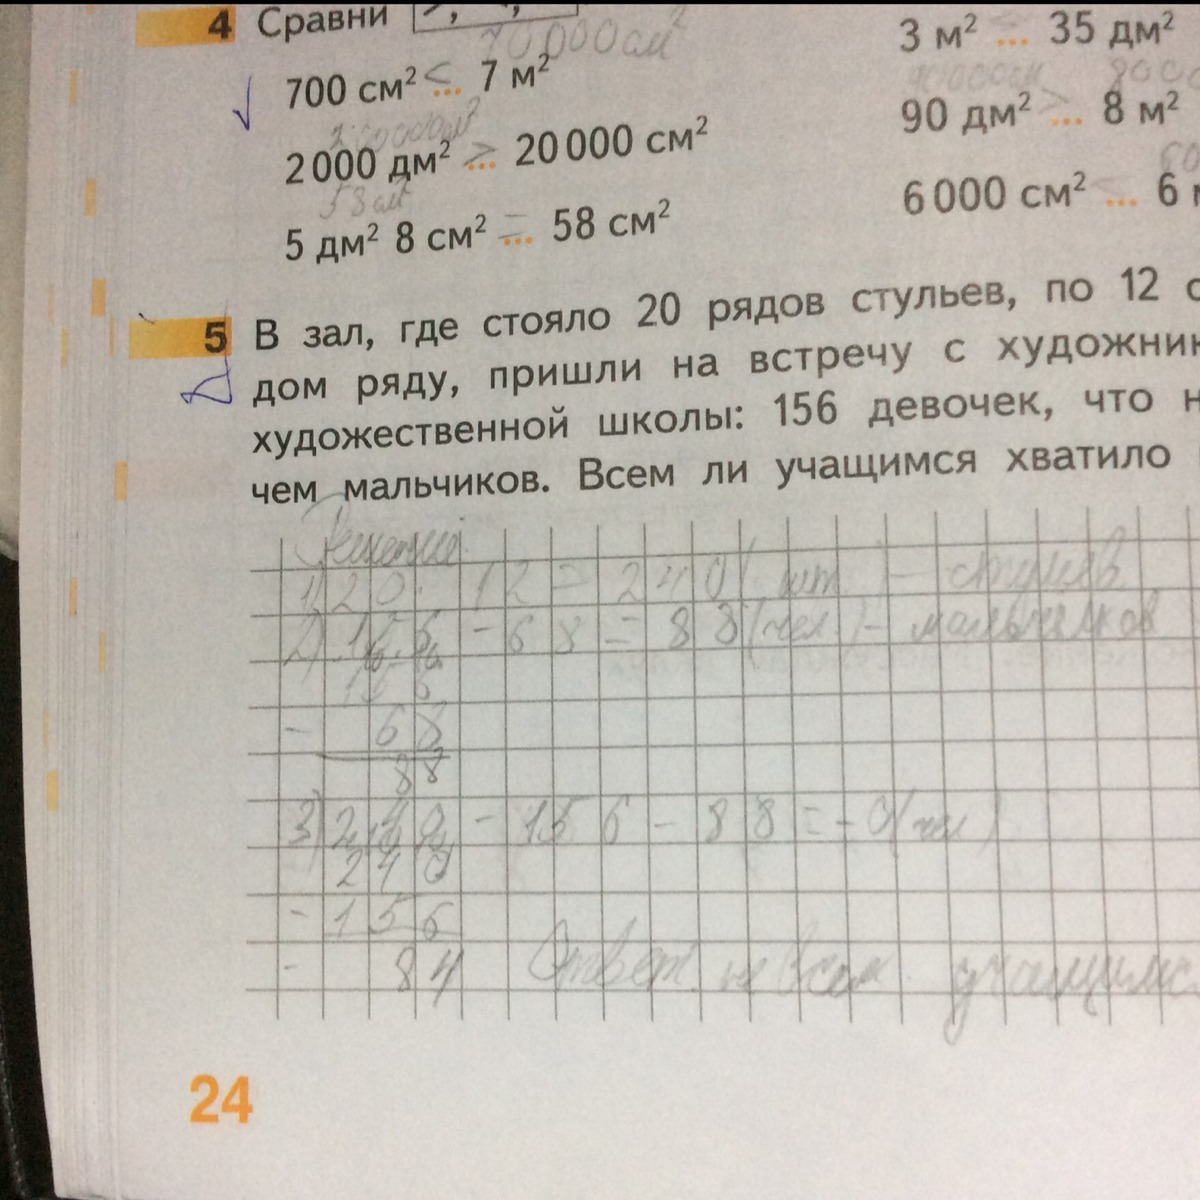 4 Сравни
70 000 см²
700 см² < ... 7 м²
3 м² ... 35 дм²
2 000 дм² > ... 20 000 см²
90 дм² > ... 8 м²
58 см²
5 дм² 8 см² = ... 58 см²
6 000 см² < ... 6
5 В зал, где стояло 20 рядов стульев, по 12 с
дом ряду, пришли на встречу с художник
художественной школы: 156 девочек, что н
чем мальчиков. Всем ли учащимся хватило
Решение
1) 20 · 12 = 240 (шт) – стульев
2) 156 – 68 = 88 (чел) – мальчиков
156
– 68
88
3) 240 – 156 – 88 = – (чел)
240
– 156
– 84 Ответ не всем учащимс
24